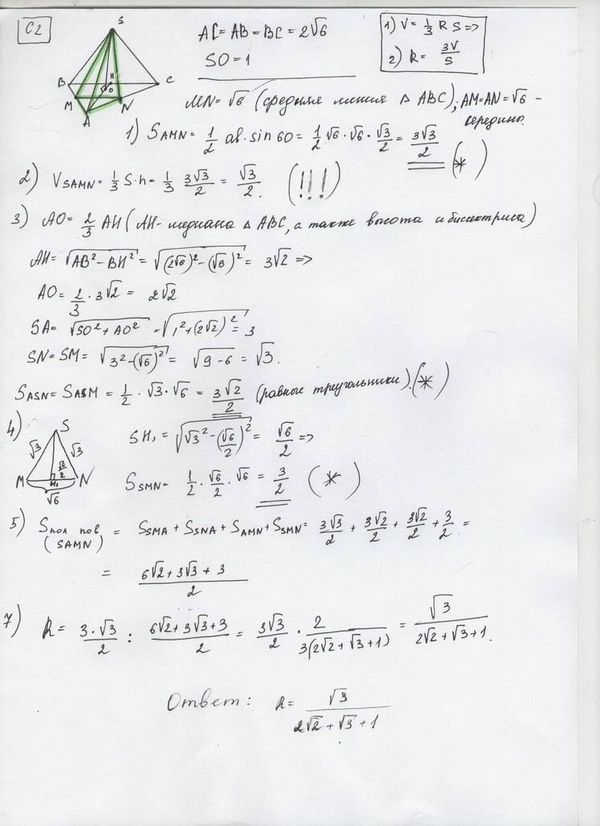 C2
S
B
H
O
C
M
N
A
AC = AB = BC = 2√6
SO = 1
1) V = 1/3 R S =>
2) R = 3V/S
MN = √6 (средняя линия Δ ABC); AM = AN = √6 - середина.
1) SAMN = 1/2 ab · sin 60 = 1/2 √6 · √6 · √3/2 = 3√3/2 (*)
2) VSAMN = 1/3 S·h = 1/3 3√3/2 = √3/2. (!!!)
3) AO = 2/3 AH (AH - медиана Δ ABC, а также высота и биссектриса)
AH = √(AB² - BH²) = √((2√6)² - (√6)²) = 3√2 =>
AO = 2/3 · 3√2 = 2√2
SA = √(SO² + AO²) = √(1² + (2√2)²) = 3
SN = SM = √(3² - (√6)²) = √(9 - 6) = √3.
SASN = SASM = 1/2 · √3 · √6 = 3√2/2 (равные треугольники). (*)
4)
S
√3 √3
√3/2
M H₁ N
√6
SH₁ = √(√3² - (√6/2)²) = √6/2 =>
SSMN = 1/2 · √6/2 · √6 = 3/2 (*)
5) Sпол пов = SSMA + SSNA + SAMN + SSMN = 3√3/2 + 3√2/2 + 3√2/2 + 3/2 =
(SAMN)
= (6√2 + 3√3 + 3)/2
7) R = 3·√3/2 : (6√2 + 3√3 + 3)/2 = 3√3/2 · 2/(3(2√2 + √3 + 1)) = √3/(2√2 + √3 + 1).
Ответ: R = √3/(2√2 + √3 + 1)